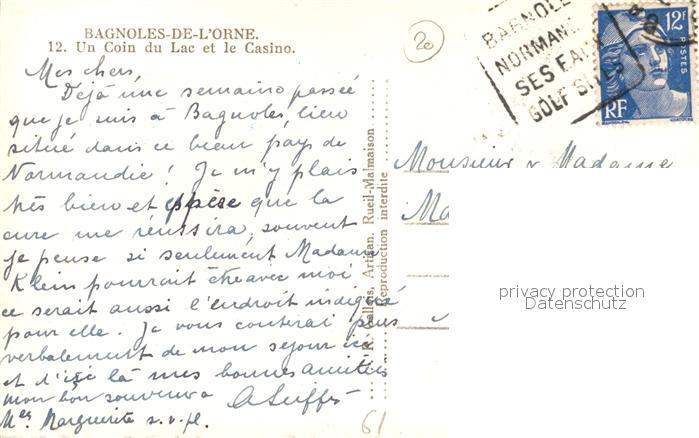 BAGNOLES-DE-L'ORNE.
12. Un Coin du Lac et le Casino.
20
BAGNOLE
NORMAND
SES EAUX
GOLF SITES
12F
POSTES
RF
Mes chers,
Déjà une semaine passée
que je suis à Bagnoles, bien
située dans ce beau pays de
Normandie! Je m'y plais
très bien et espère que la
cure me réussira, souvent
je pense si seulement Madame
Klein pourrait être avec moi
ce serait aussi l'endroit indiqué
pour elle. Je vous conterai plus
verbalement de mon séjour ici
et d'ici là mes bonnes amitiés
mon bon souvenir a
Mlle Marguerite s.v.pl.
R. Dallois, Artisan. Rueil-Malmaison
Reproduction interdite
Monsieur & Madame
privacy protection
Datenschutz
61